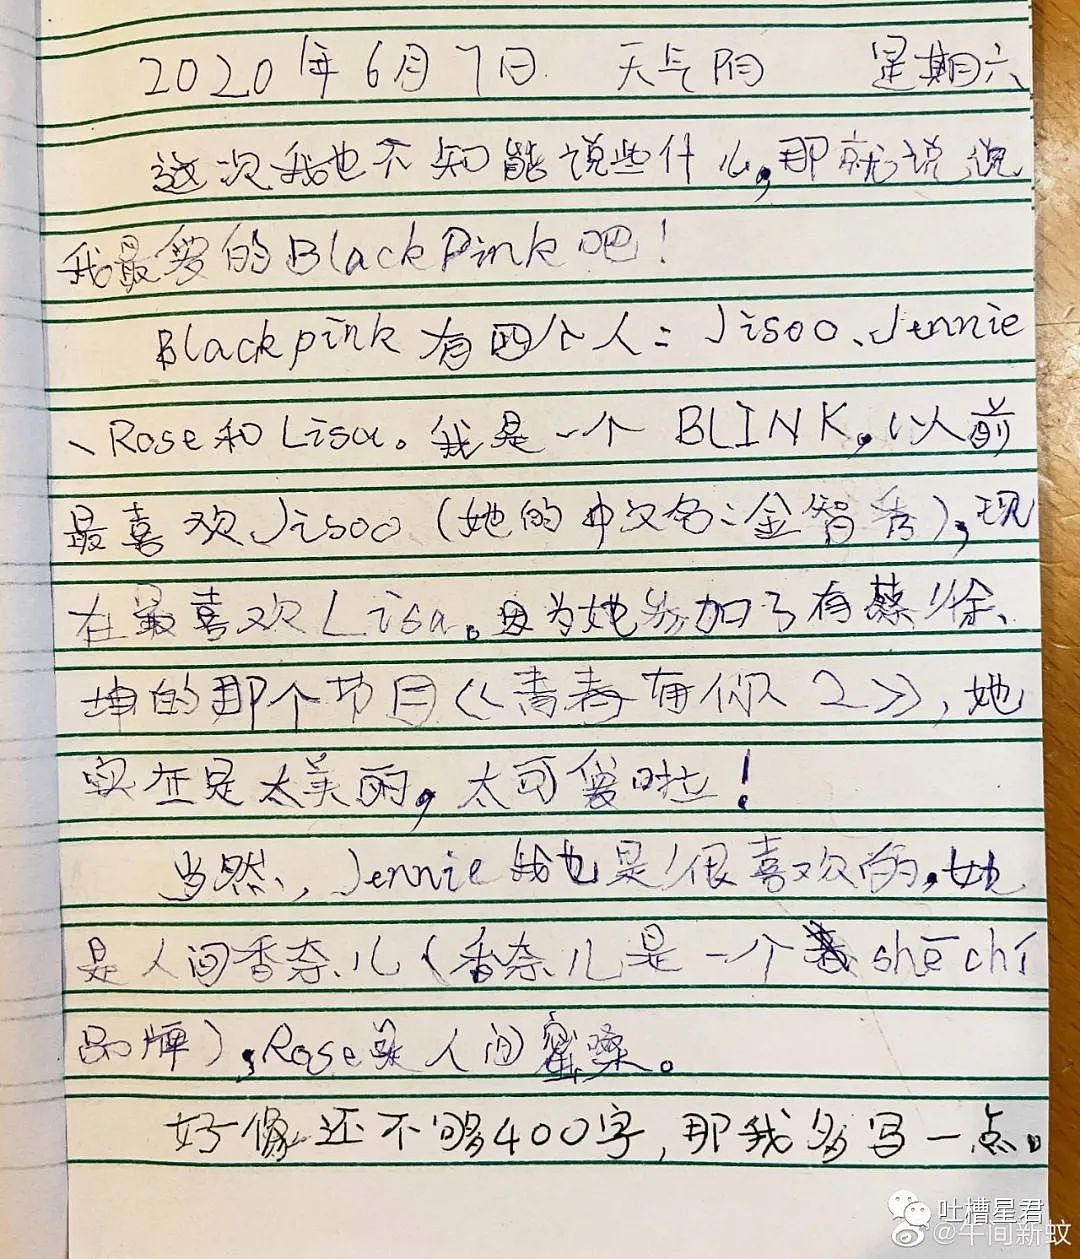 2020年6月7日 天气阴 星期六
这次我也不知能说些什么,那就说说
我最爱的BlackPink吧!
Blackpink有四个人:Jisoo、Jennie
、Rose和Lisa。我是一个BLINK,以前
最喜欢Jisoo(她的中文名:金智秀),现
在最喜欢Lisa。因为她参加了有蔡徐
坤的那个节目《青春有你2》,她
实在是太美丽,太可爱啦!
当然,Jennie我也是很喜欢的,她
是人间香奈儿(香奈儿是一个shē chǐ
品牌),Rose是人间蜜嗓。
好像还不够400字,那我多写一点。
吐槽星君
@午间新蚊